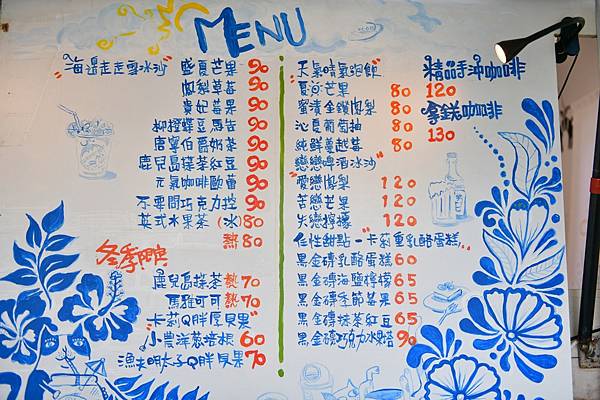 MENU
"海邊走走雪冰沙" 盛夏芒果 90
鳳梨草莓 90
貴妃莓果 90
柳橙蝶豆馬告 90
唐寧伯爵奶茶 90
鹿兒島抹茶紅豆 90
元氣咖啡歐蕾 90
不要問巧克力控 90
英式水果茶(冰)80
熱80
冬季門戶
鹿兒島抹茶熱70
馬雅可可熱70
"卡莉Q胖厚貝果"
小農洋蔥培根 60
漁夫明太子Q胖貝果 70
"天氣晴氣泡飲"
夏沁芒果 80
蜜漬金鑽鳳梨 80
沁夏葡萄柚 80
純鮮蔓越莓 80
"戀戀啤酒冰沙"
愛戀鳳梨 120
苦戀芒果 120
失戀檸檬 120
任性甜點-"卡莉重乳酪蛋糕"
黑金磚乳酪蛋糕 60
黑金磚海鹽檸檬 65
黑金磚季節莓果 65
黑金磚抹茶紅豆 65
黑金磚巧克力冰塔 90
"精品手沖咖啡"
120
"拿鐵咖啡"
130